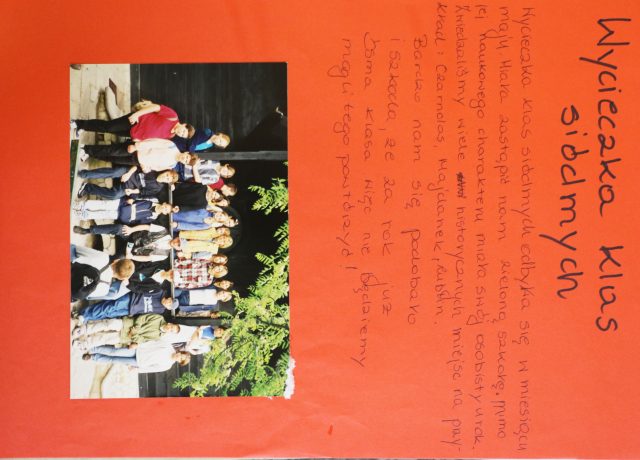 Wycieczka klas
siódmych
Wycieczka klas siódmych odbyła się w miesiącu
maju. Miała zastąpić nam zieloną szkołę, mimo
jej naukowego charakteru miała swój osobisty urok.
Zwiedzaliśmy wiele historycznych miejsc na przy-
kład: Czarnolas, Majdanek, Lublin.
Bardzo nam się podobało
i szkoda, że za rok już
ósma klasa więc nie będziemy
mogli tego powtórzyć!